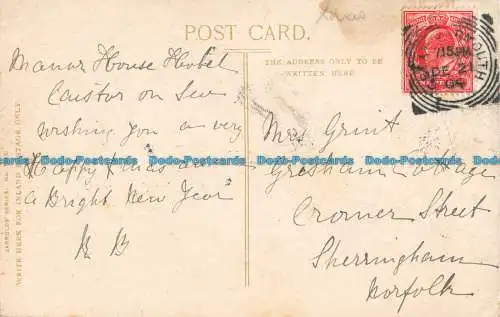 Xmas
POST CARD.
THE ADDRESS ONLY TO BE
WRITTEN HERE.
Manor House Hotel
Caistor on Sea
Wishing you a very
Happy Xmas and
a Bright New Year
Mrs Grint
Gresham Cottage
Cromer Street
Sherringham
Norfolk
WRITE HERE FOR INLAND POSTAGE ONLY.
JARROLDS' SERIES.
MOUTH
715PM
DE 21
04
Dodo-Postcards Dodo-Postcards Dodo-Postcards Dodo-Postcards Dodo-Postcards Dodo-Postcards